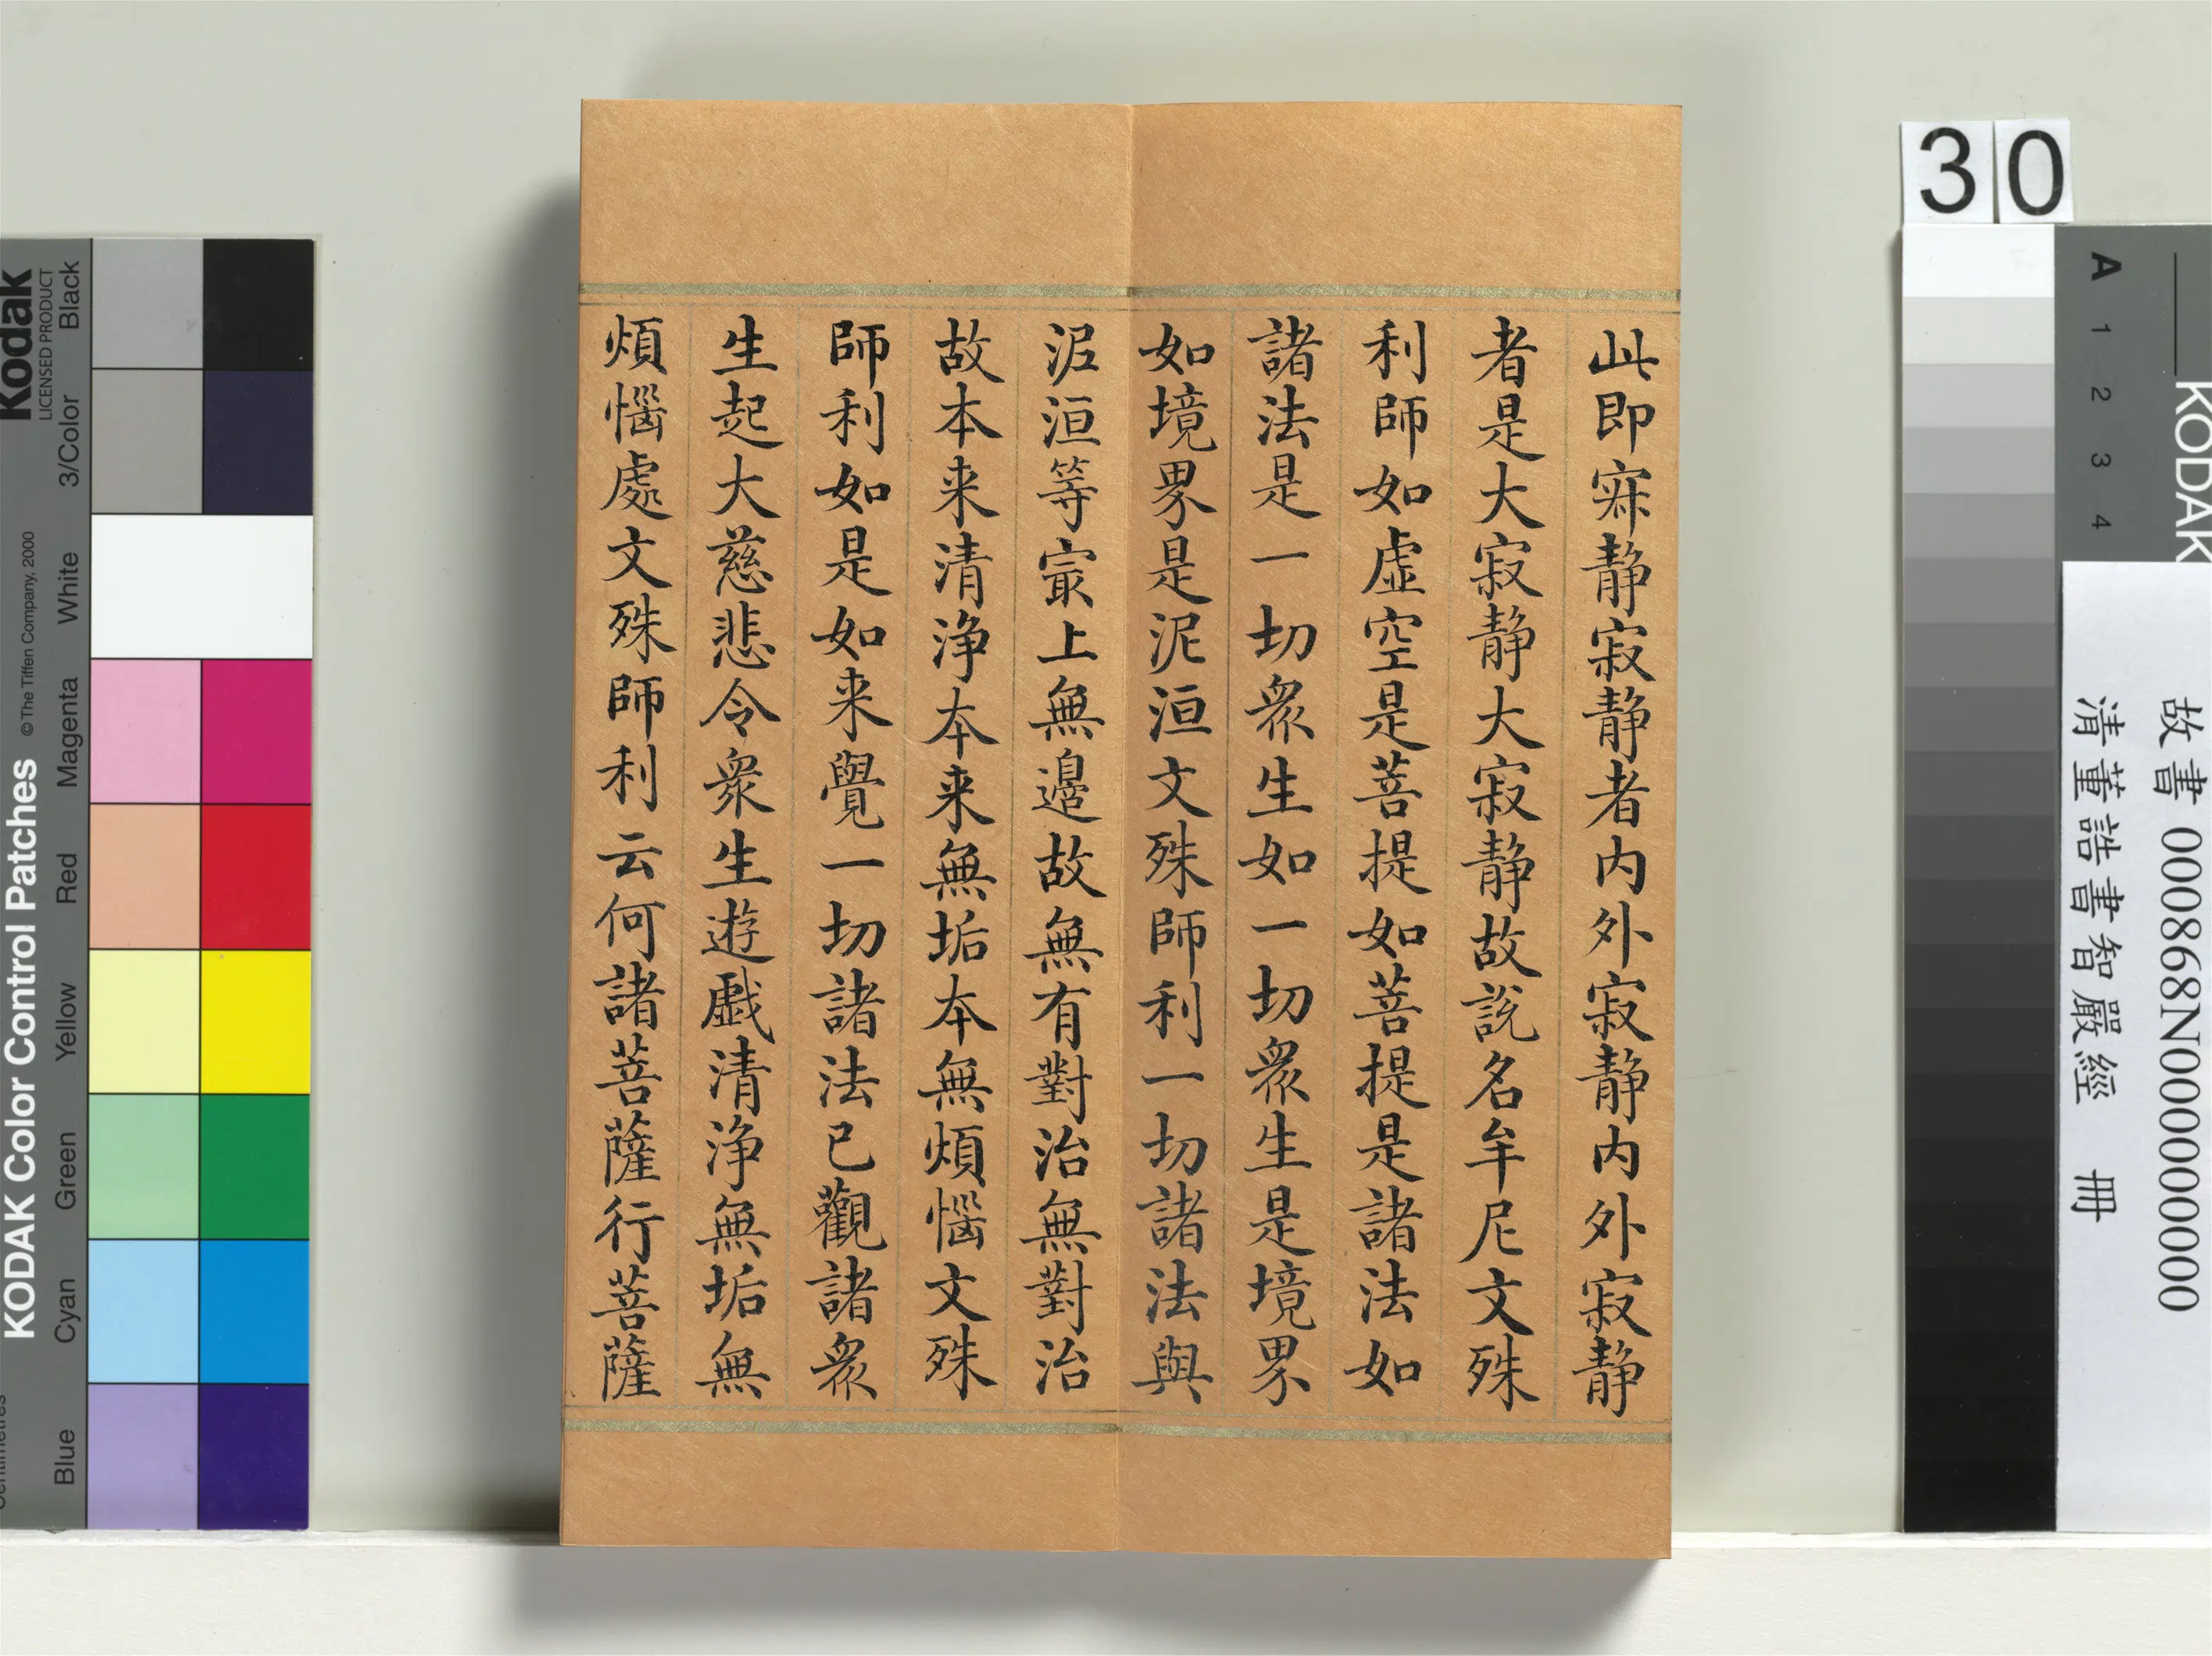 此即寂静寂静者内外寂静内外寂静
者是大寂静大寂静故説名牟尼文殊
利師如虚空是菩提如菩提是諸法如
諸法是一切衆生如一切衆生是境界
如境界是泥洹文殊師利一切諸法與
泥洹等冣上無邉故無有對治無對治
故本来清浄本来無垢本無煩惱文殊
師利如是如来覺一切諸法已觀諸衆
生起大慈悲令衆生遊戯清浄無垢無
煩惱處文殊師利云何諸菩薩行菩薩
30
A 1 2 3 4
KODAK
故書 000868N000000000
清董誥書智嚴經 冊
Kodak
LICENSED PRODUCT
Black
3/Color
White
Magenta
Red
Yellow
Green
Cyan
Blue
KODAK Color Control Patches
©The Tiffen Company, 2000